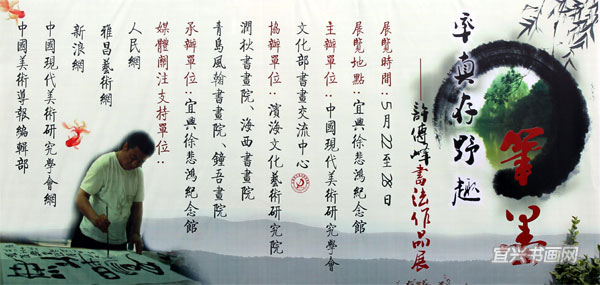 筆墨
率真存野趣
——許傳峰書法作品展
展覽時間：5月22至28日
展覽地點：宜興徐悲鴻紀念館
主辦單位：中國現代美術研究學會
文化部書畫交流中心
協辦單位：濱海文化藝術研究院
潤秋書畫院、海西書畫院
青島風翰書畫院、鐘吾書畫院
承辦單位：宜興徐悲鴻紀念館
媒體關注支持單位：
人民網
雅昌藝術網
新浪網
中國現代美術研究學會網
中國美術導報編輯部
宜兴书画网